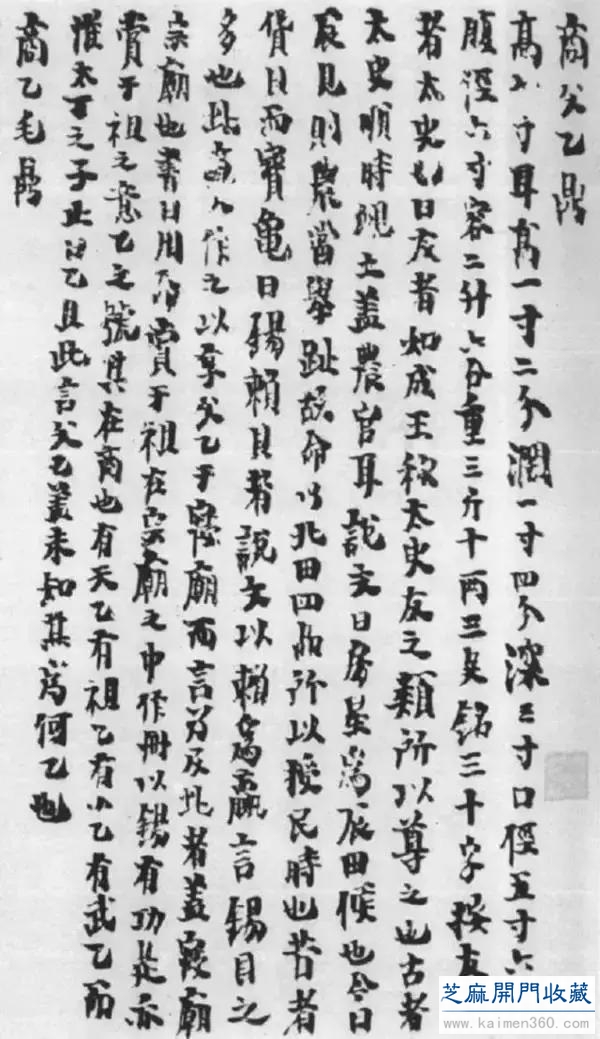 商父乙鼎
高六寸耳高一寸二分濶一寸四分深三寸口徑五寸六
腹徑六寸容二升六合重三斤十两三足銘三十字按友
者太史也曰友者如成王称太史友之類所以尊之也古者
太史順時覛土盖農官耳說文曰房星為辰田候也今曰
辰見則農當舉趾故命以北田四品所以授民時也昔者
貨貝而寶龜曰錫賴貝者說文以賴為贏言錫貝之
多也此商人作之以享父乙于寢廟而言乃及此者盖寢廟
宗廟也書曰用命賞于祖在宗廟之中作冊以錫有功是亦
賞于祖之意乙之號其在商也有天乙有祖乙有小乙有武乙而
惟太丁之子止曰乙且此言父乙盖未知其為何乙也
商乙毛鼎
芝麻開門收藏
www.kaimen360.com